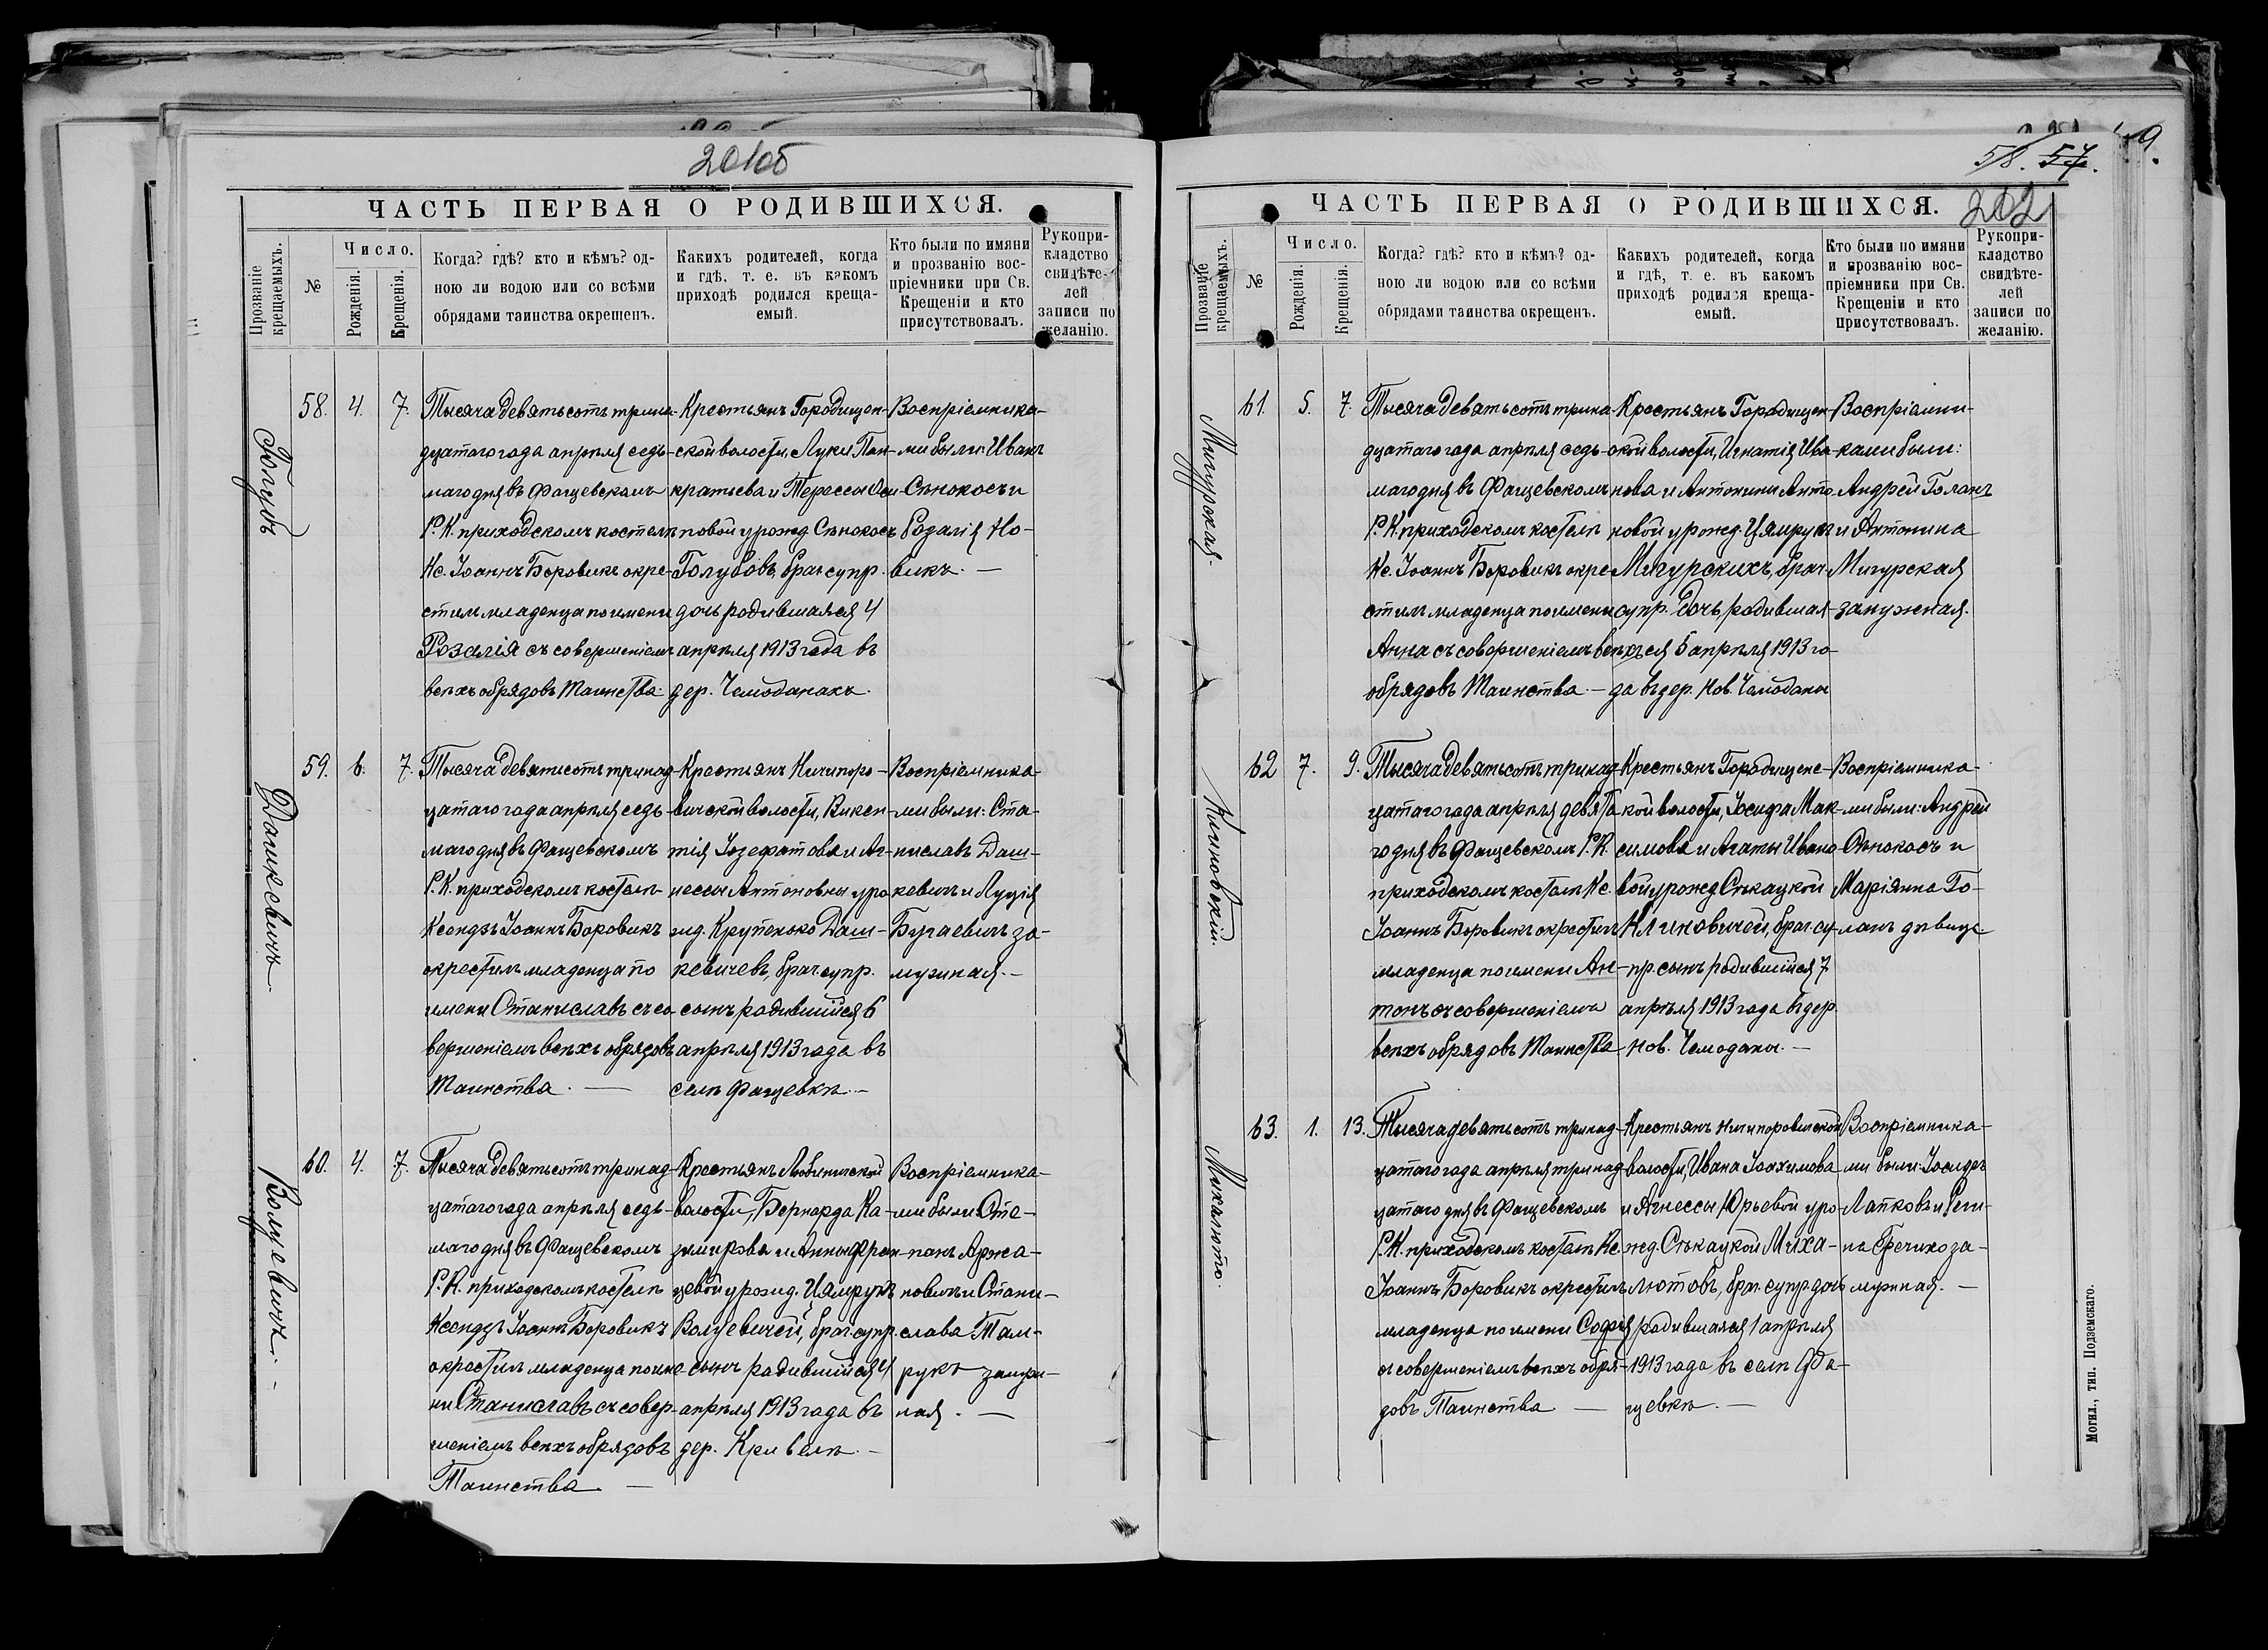 201об
ЧАСТЬ ПЕРВАЯ О РОДИВШИХСЯ.
Прозваніе крещаемыхъ.
№
Число.
Рожденія.
Крещенія.
Когда? гдѣ? кто и кѣмъ? од-
ною ли водою или со всѣми
обрядами таинства окрещенъ.
Какихъ родителей, когда
и гдѣ, т. е. въ какомъ
приходѣ родился креща-
емый.
Кто были по имяни
и прозванію вос-
пріемники при Св.
Крещеніи и кто
присутствовалъ.
Рукопри-
кладство
свидѣте-
лей
записи по
желанію.
Голубъ
58. 4. 7.
Тысяча девятьсотъ трина-
дцатаго года апрѣля седь-
маго дня въ Фащевскомъ
Р. К. приходскомъ костелѣ
Кс. Іоаннъ Боровикъ окре-
стилъ младенца по имени
Розалія съ совершеніемъ
всѣхъ обрядовъ Таинства.
Крестьянъ Городищен-
ской волости, Луки Пан-
кратьева и Терессы Оси-
повой урожд. Сѣнокосъ
Голубовъ, брач. супр.
дочь родившаяся 4
апрѣля 1913 года въ
дер. Чемоданахъ.
Воспріемника-
ми были: Иванъ
Сѣнокосъ и
Розалія Но-
викъ. —
Дашкевичъ.
59. 6. 7.
Тысяча девятисотъ тринад-
цатаго года апрѣля седь-
маго дня въ Фащевскомъ
Р. К. приходскомъ костелѣ
Ксендзъ Іоаннъ Боровикъ
окрестилъ младенца по
имени Станиславъ съ со-
вершеніемъ всѣхъ обрядовъ
Таинства. —
Крестьянъ Ничипоро-
вичской волости, Викен-
тія Іозефатова и Аг-
нессы Антоновны уро-
жд. Крупенько Даш-
кевичевъ, брач. супр.
сынъ родившійся 6
апрѣля 1913 года въ
селѣ Фащевкѣ. —
Воспріемника-
ми были: Ста-
ниславъ Даш-
кевичъ и Луція
Бугаевичъ за-
мужная. —
Волцевичъ. -
60. 4. 7.
Тысяча девятьсотъ тринад-
цатаго года апрѣля седь-
маго дня въ Фащевскомъ
Р. К. приходскомъ костелѣ
Ксендзъ Іоаннъ Боровикъ
окрестилъ младенца по име-
ни Станиславъ съ совер-
шеніемъ всѣхъ обрядовъ
Таинства. —
Крестьянъ Любиничской
волости, Бернарда Ка-
зимирова и Анны Фран-
цевой урожд. Цямрукъ
Волцевичей, брач. супр.
сынъ родившійся 4
апрѣля 1913 года въ
дер. Кривелѣ. —
Воспріемника-
ми были Сте-
панъ Аржа-
новичъ и Стани-
слава Там-
рукъ замуж-
ная. —
58. 57.
202
ЧАСТЬ ПЕРВАЯ О РОДИВШИХСЯ.
Прозваніе крещаемыхъ.
№
Число.
Рожденія.
Крещенія.
Когда? гдѣ? кто и кѣмъ? од-
ною ли водою или со всѣми
обрядами таинства окрещенъ.
Какихъ родителей, когда
и гдѣ, т. е. въ какомъ
приходѣ родился креща-
емый.
Кто были по имяни
и прозванію вос-
пріемники при Св.
Крещеніи и кто
присутствовалъ.
Рукопри-
кладство
свидѣте-
лей
записи по
желанію.
Мигурская.
61. 5. 7.
Тысяча девятьсотъ трина-
дцатаго года апрѣля седь-
маго дня въ Фащевскомъ
Р. К. приходскомъ костелѣ
Кс. Іоаннъ Боровикъ окре-
стилъ младенца по имени
Анна съ совершеніемъ всѣхъ
обрядовъ Таинства. —
Крестьянъ Городищен-
ской волости, Игнатія Ива-
нова и Антонины Анто-
новой урожд. Цямрукъ
Мигурскихъ, брач.
супр. дочь, родившая-
ся 5 апрѣля 1913 го-
да въ дер. Нов. Чемоданы
Воспріемни-
ками были:
Андрей Голанъ
и Антонина
Мигурская
замужная.
Климовскій.
62 7. 9.
Тысяча девятьсотъ тринад-
цатаго года апрѣля девята-
го дня въ Фащевскомъ Р. К.
приходскомъ костелѣ Кс.
Іоаннъ Боровикъ окрестилъ
младенца по имени Ан-
тонъ съ совершеніемъ
всѣхъ обрядовъ Таинства
Крестьянъ Городищенс-
кой волости, Іосифа Мак-
симова и Агаты Ивано-
вой урожд. Сѣкацкой
Климовичей, брач. су-
пр. сынъ родившійся 7
апрѣля 1913 года въ дер.
Нов. Чемоданы. —
Воспріемника-
ми были: Андрей
Сѣнокосъ и
Маріянна Го-
ланъ дѣвица.
Михалюто.
63. 1. 13.
Тысяча девятьсотъ тринад-
цатаго года апрѣля тринад-
цатаго дня въ Фащевскомъ
Р. К. приходскомъ костелѣ Кс.
Іоаннъ Боровикъ окрестилъ
младенца по имени Софія
съ совершеніемъ всѣхъ обря-
довъ Таинства —
Крестьянъ Ничипоровичской
волости, Ивана Іоахимова
и Агнессы Юрьевой уро-
жд. Сѣкацкой Миха-
лютовъ, брач. супр. дочь
родившаяся 1 апрѣля
1913 года въ селѣ Фа-
щевкѣ. —
Воспріемника-
ми были: Іосифъ
Лапковъ и Реги-
на Гречихо за-
мужная. —
Могил., тип. Подземскаго.